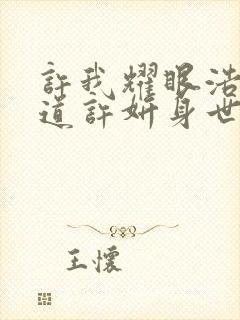 許我耀眼浩
道許妍身世
王懷